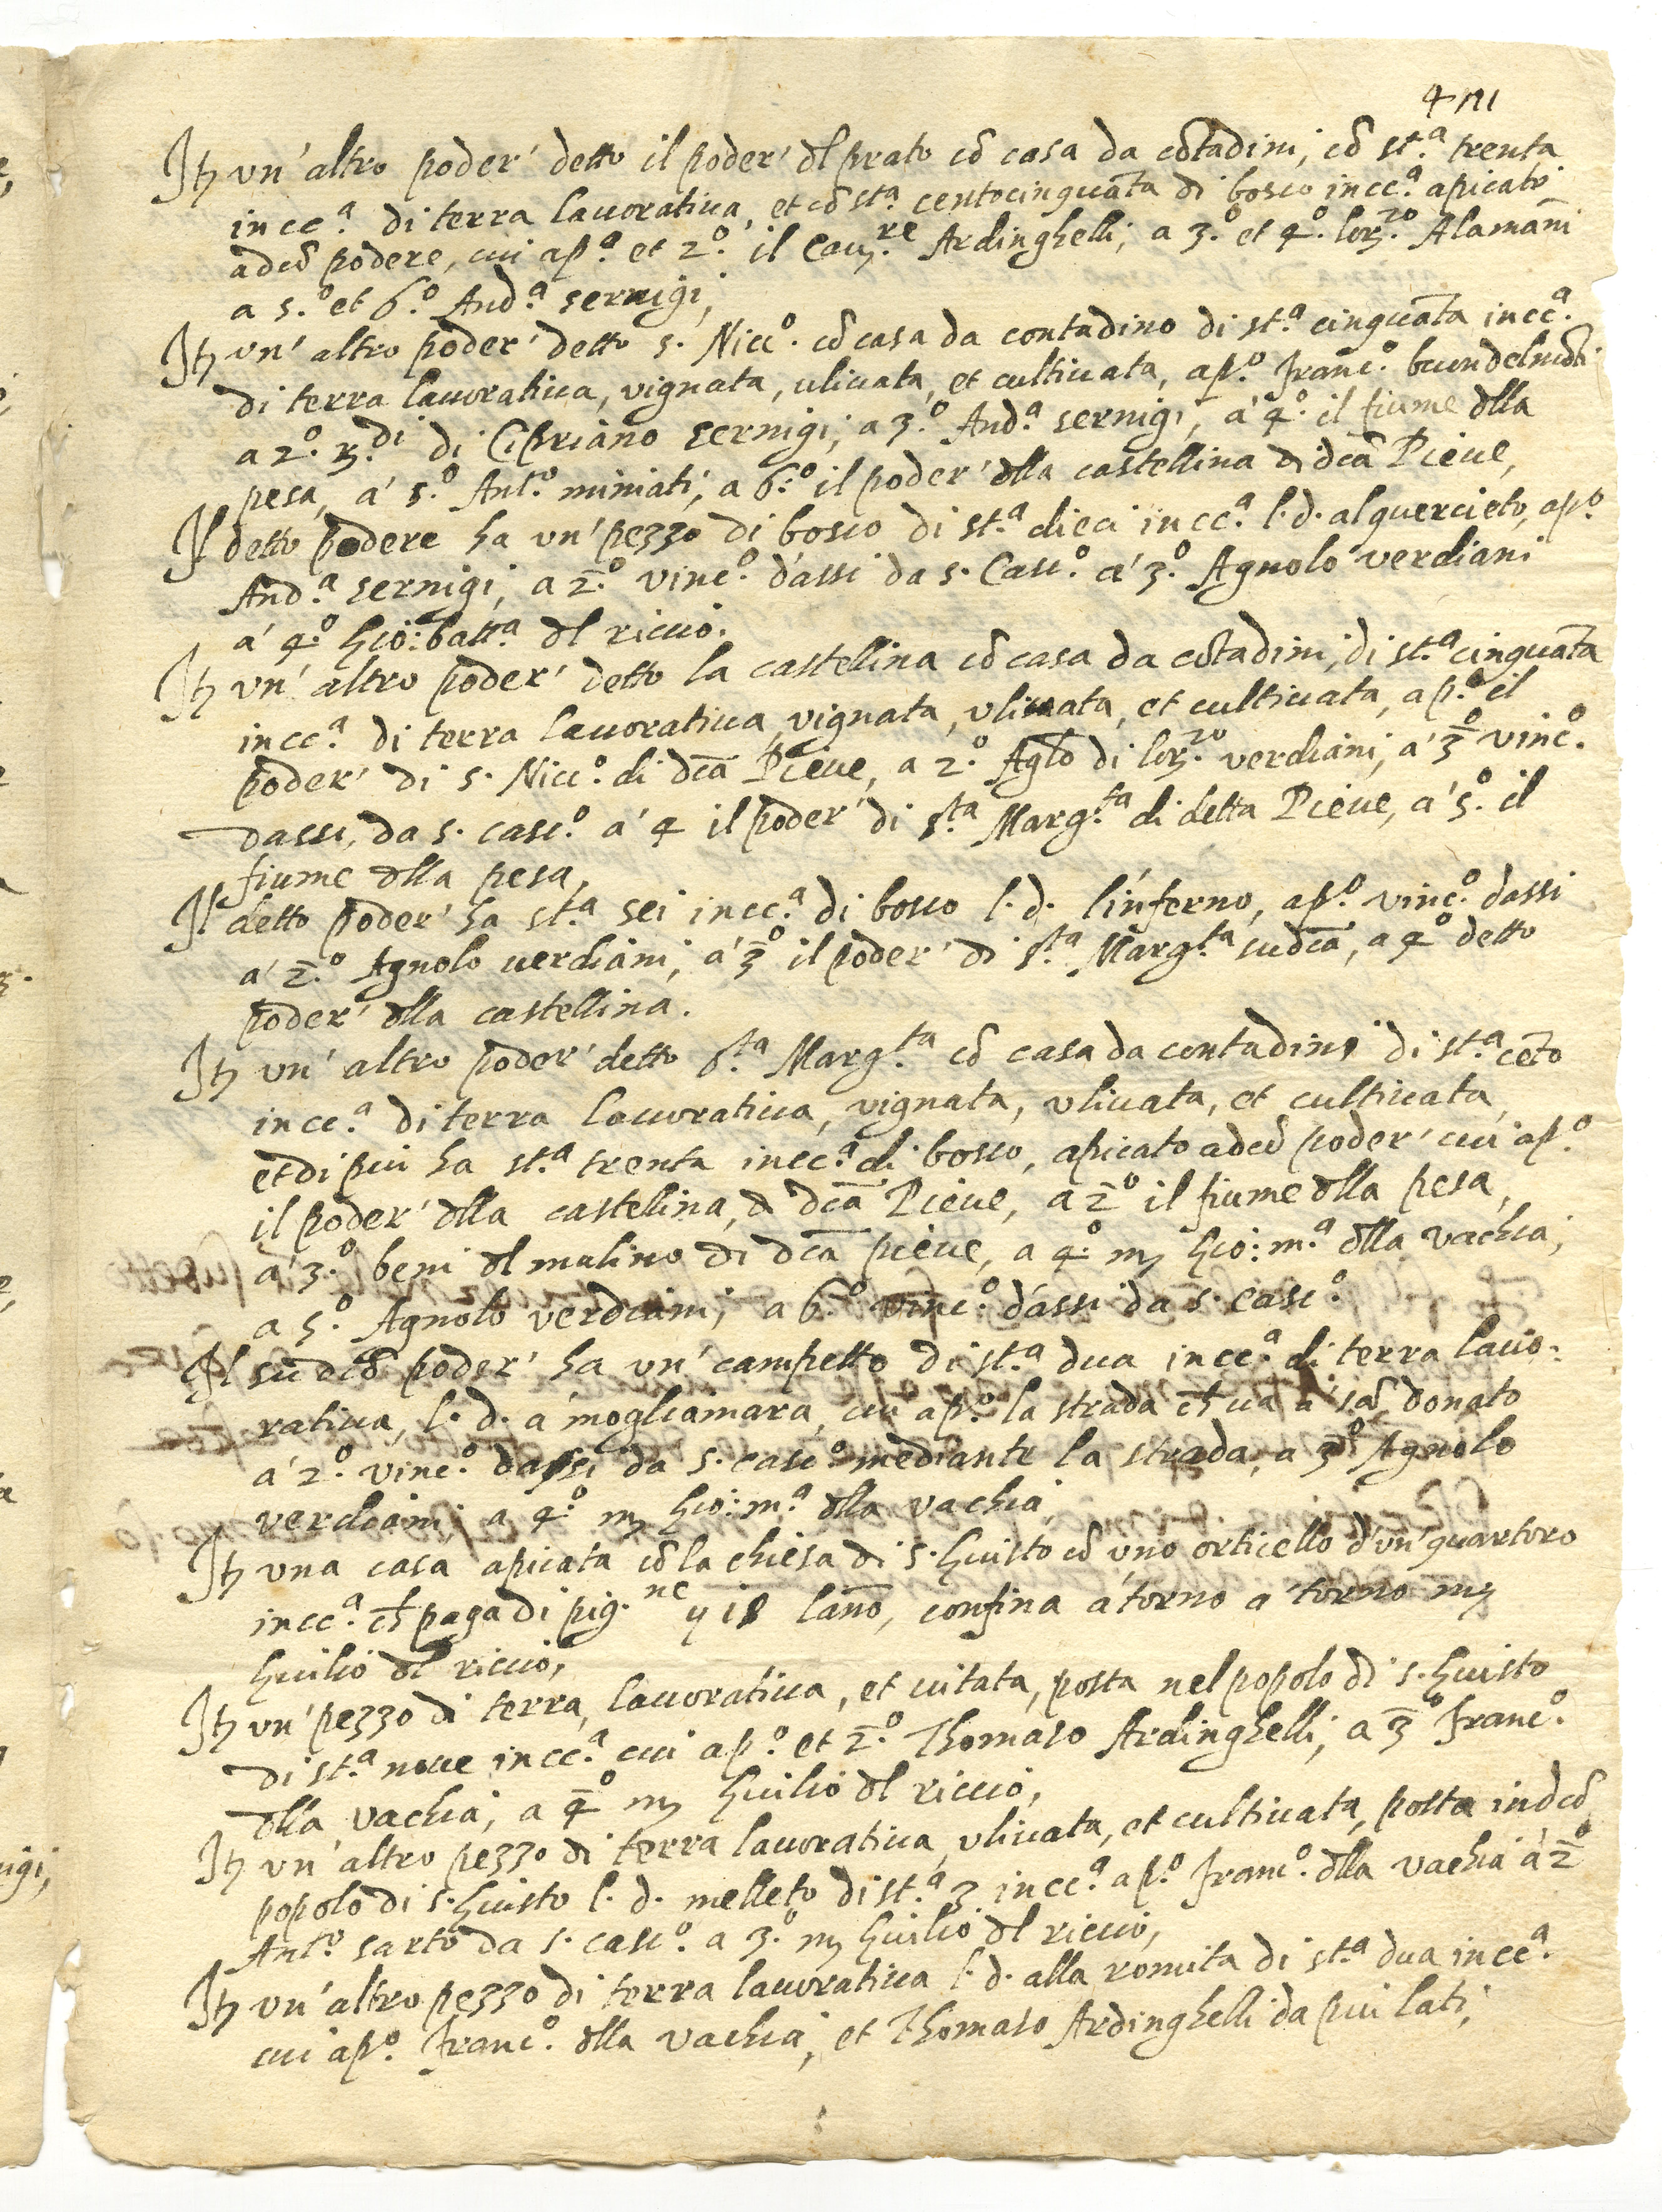 Itꝫ vn' altro poder' detto il poder' dl prato cō casa da cōtadini, cō st.ª trenta
incc.ª di terra lauoratiua, et cō st.ª centocinquāta di bosco incc.ª apicato
adcō podere, cui ap.º et 2.º il Cau.re Ardinghelli; a 3.º et 4.º lorz.zo Alamāni
a 5.º et 6.º And.ª sernigi,
Itꝫ vn' altro poder' detto s. Nicc.º cō casa da contadino di st.ª cinquāta incc.ª
di terra lauoratiua, vignata, uliuata, et cultiuata, ap.º franc.º buondelmōti
a 2.º r.di di Cipriano sernigi; a 3.º And.ª sernigi, a' 4.º il fiume dlla
pesa, a' 5.º Ant.º miniati; a 6.º il poder' dlla castellina di dcā Pieue,
Il detto podere ha vn' pezzo di bosco di st.ª dieci incc.ª l. d. alquercieto, ap.º
And.ª sernigi; a 2.º vinc.º d'assi da s. Casc.º a' 3.º Agnolo verdiani
a' 4.º Gio: batt.ª dl riccio.
Itꝫ vn' altro poder' detto la castellina cō casa da cōtadini, di st.ª cinquāta
incc.ª di terra lauoratiua, vignata, vliuata, et cultiuata, ap.º il
poder' di s. Nicc.º di dcā Pieue, a 2.º Agl̄o di lorz.zo verdiani, a' 3º vinc.º
dassi, da s. casc.º a' 4 il poder' di s.ta Marg.ta di detta Pieue, a' 5.º il
fiume dlla pesa,
Il detto poder' ha st.ª sei incc.ª di bosco l. d. l'inferno, ap.º vinc.º dassi
a' 2.º Agnolo uerdiani, a' 3º il poder' di s.ta Marg.ta sudcā, a 4º detto
poder' dlla castellina.
Itꝫ vn' altro poder' detto s.ta Marg.ta cō casa da contadini di st.ª cēto
incc.ª di terra lauoratiua, vignata, vliuata, et cultiuata,
et di piu ha st.ª trenta incc.ª di bosco, apicato adcō poder' cui ap.º
il poder' dlla castellina, di dcā Pieue, a 2º il fiume dlla pesa,
a' 3.º beni dl mulino di dcā pieue, a 4º mꝫ Gio: m.ª dlla vachia;
a 5.º Agnolo verdiani; a 6.º vinc.º d'assi da s. casc.º
Il sudcō poder' ha vn' campetto di st.ª dua incc.ª di terra lauo:
ratiua, l. d. a' mogliamara, cui ap.º la strada ch ua a' sā donato
a' 2.º vinc.º dassi da s. casc.º mediante la strada, a 3º Agnolo
verdiani, a 4.º mꝫ Gio: m.ª dlla vachia,
Itꝫ vna casa apicata cō la chiesa di s. Giusto cō vno orticello d'vn' quartoro
incc.ª ch paga di pig.ne lāno, confina a'torno a' torno mꝫ
Giulio dl riccio,
Itꝫ vn' pezzo di terra, lauoratiua, et uitata, posta nel popolo di s. Giusto
di st.ª noue incc.ª cui ap.º et 2.º Thomaso Ardinghelli, a 3º franc.º
dlla vachia, a 4º mꝫ Giulio dl riccio,
Itꝫ vn' altro pezzo di terra lauoratiua, vliuata, et cultiuata, posta in dcō
popolo di s. Giusto l. d. melleto di st.ª 3 incc.ª ap.º franc.º dlla vachia a' 2º
Ant.º sarto da s. casc.º a 3.º mꝫ Giulio dl riccio,
Itꝫ vn' altro pezzo di terra lauoratiua l. d. alla romita di st.ª dua incc.ª
cui ap.º franc.º dlla vachia, et Thomaso Ardinghelli da piu lati,